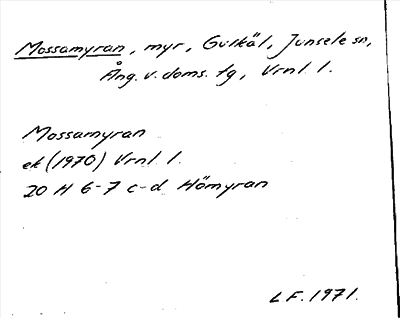 Mossamyran, myr, Gulkäl, Junsele sn,
Ång. v. doms. tg, Vrnl l.
Mossamyran
ek (1970) Vrnl l.
20 H 6-7 c-d Hömyran
L F. 1971.